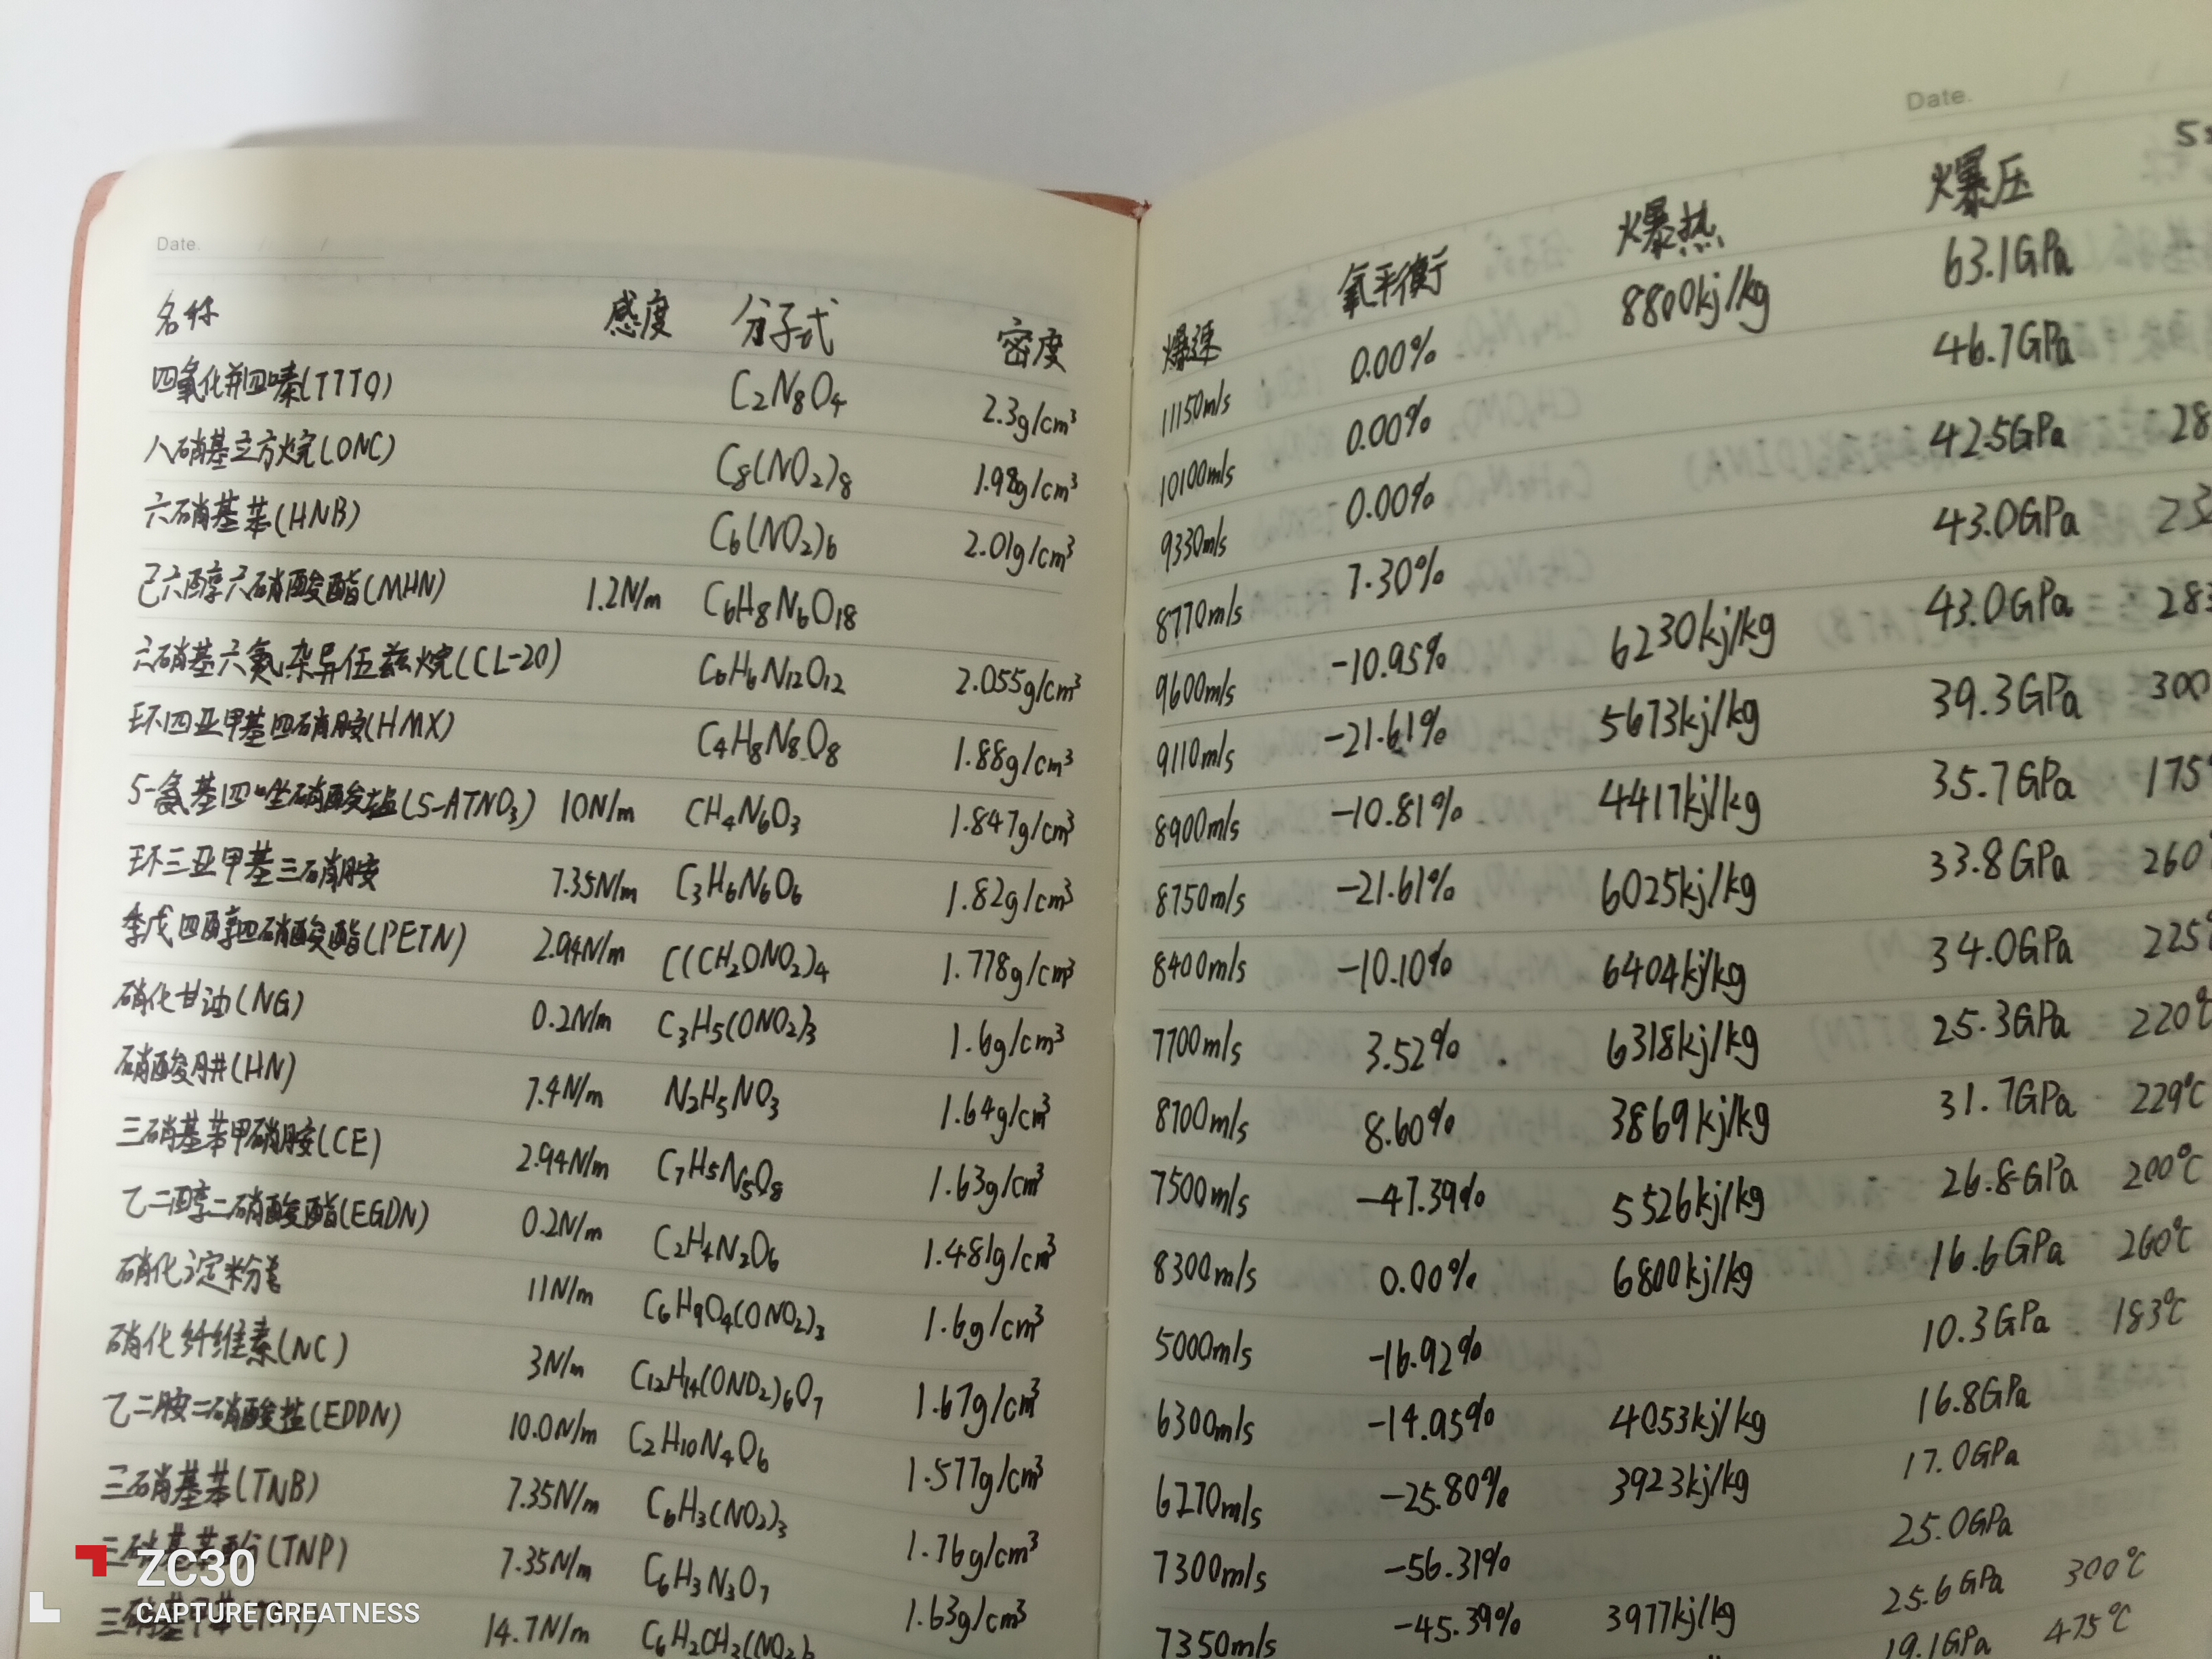 Date. / /
名称 感度 分子式 密度
四氧化并四嗪(TTTO) C2N8O4 2.3g/cm³
八硝基立方烷(ONC) C8(NO2)8 1.98g/cm³
六硝基苯(HNB) C6(NO2)6 2.01g/cm³
己六醇六硝酸酯(MHN) 1.2N/m C6H8N6O18
六硝基六氮杂异伍兹烷(CL-20) C6H6N12O12 2.055g/cm³
环四亚甲基四硝胺(HMX) C4H8N8O8 1.88g/cm³
5-氨基四唑硝酸盐(5-ATNO3) 10N/m CH4N6O3 1.847g/cm³
环三亚甲基三硝胺 7.35N/m C3H6N6O6 1.82g/cm³
季戊四醇四硝酸酯(PETN) 2.94N/m C(CH2ONO2)4 1.778g/cm³
硝化甘油(NG) 0.2N/m C3H5(ONO2)3 1.6g/cm³
硝酸肼(HN) 7.4N/m N2H5NO3 1.64g/cm³
三硝基苯甲硝胺(CE) 2.94N/m C7H5N5O8 1.63g/cm³
乙二醇二硝酸酯(EGDN) 0.2N/m C2H4N2O6 1.481g/cm³
硝化淀粉 11N/m C6H9O4(ONO2)3 1.6g/cm³
硝化纤维素(NC) 3N/m C12H14(ONO2)6O7 1.67g/cm³
乙二胺二硝酸盐(EDDN) 10.0N/m C2H10N4O6 1.577g/cm³
三硝基苯(TNB) 7.35N/m C6H3(NO2)3 1.76g/cm³
三硝基苯酚(TNP) 7.35N/m C6H3N3O7 1.63g/cm³
三硝基甲苯 14.7N/m
Date.
爆速 氧平衡 爆热 爆压
11150m/s 0.00% 8800kj/kg 63.1GPa
10100m/s 0.00% 46.7GPa
9330m/s 0.00% 42.5GPa 28
8770m/s 7.30% 43.0GPa
9600m/s -10.95% 6230kj/kg 43.0GPa 283
9110m/s -21.61% 5673kj/kg 39.3GPa 300
8900m/s -10.81% 4417kj/kg 35.7GPa 175°
8750m/s -21.61% 6025kj/kg 33.8GPa 260°
8400m/s -10.10% 6404kj/kg 34.0GPa 225°
7700m/s 3.52% 6318kj/kg 25.3GPa 220℃
8700m/s 8.60% 3869kj/kg 31.7GPa 229℃
7500m/s -47.39% 5526kj/kg 26.8GPa 200℃
8300m/s 0.00% 6800kj/kg 16.6GPa 260℃
5000m/s -16.92% 10.3GPa 183℃
6300m/s -14.05% 4053kj/kg 16.8GPa
6270m/s -25.80% 3923kj/kg 17.0GPa
7300m/s -56.31% 25.0GPa
7350m/s -45.39% 3977kj/kg 25.6GPa 300℃
19.1GPa 475℃
ZC30
CAPTURE GREATNESS